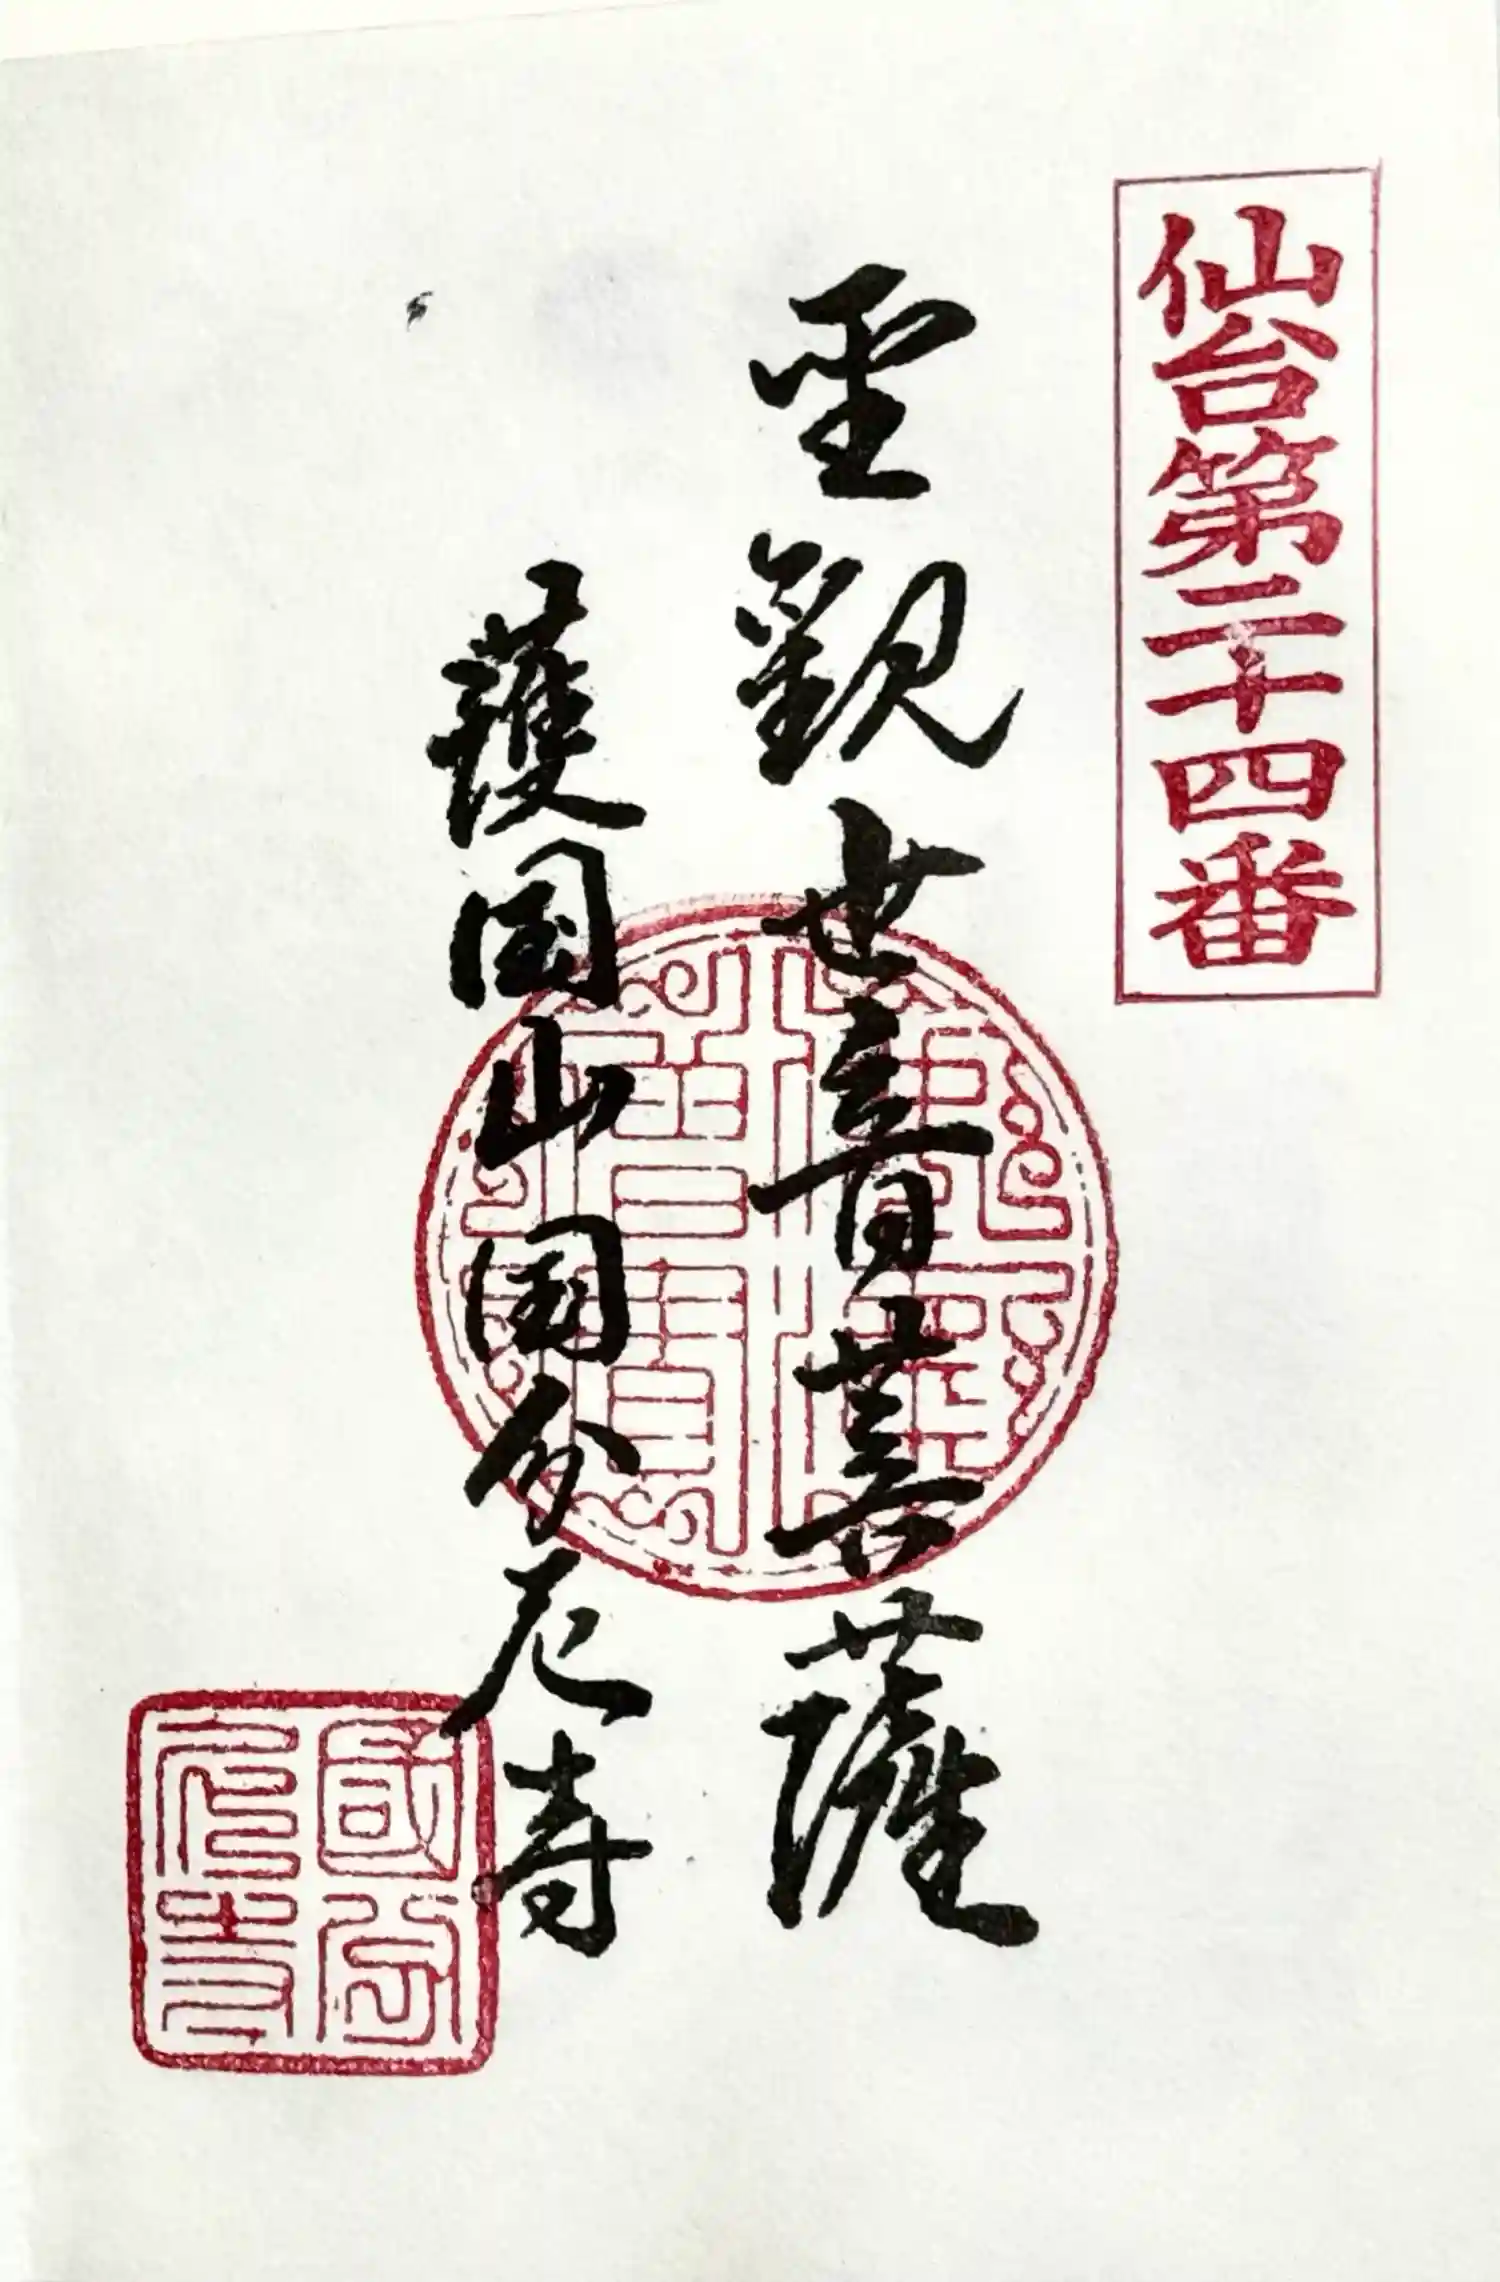 仙台第二十四番
聖観世音菩薩
護国山国分尼寺
國分尼寺